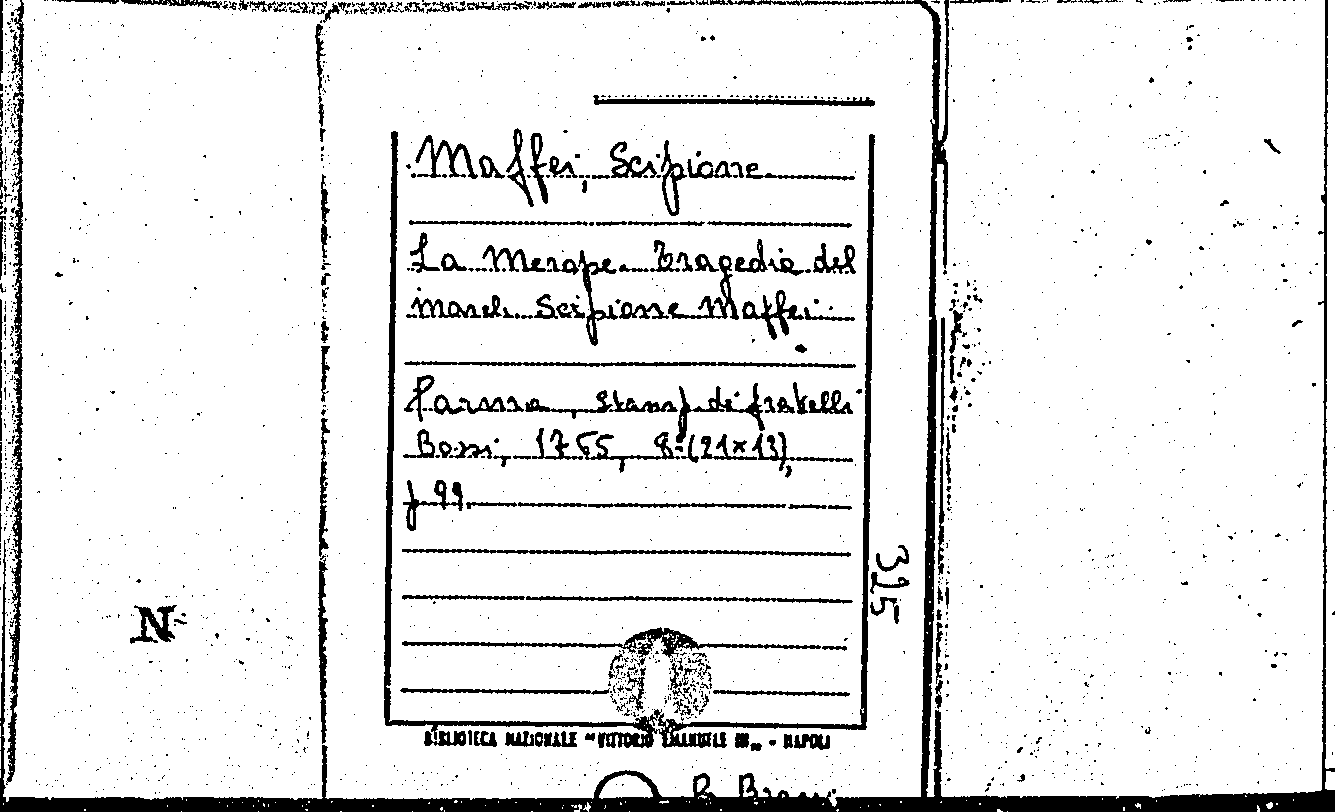 Maffei, Scipione.
La Merope. Tragedia del
march. Scipione Maffei.
Parma, stamp. di fratelli
Borsi, 1765, 8º (21x13),
p. 99.
315
N
BIBLIOTECA NAZIONALE "VITTORIO EMANUELE III" - NAPOLI